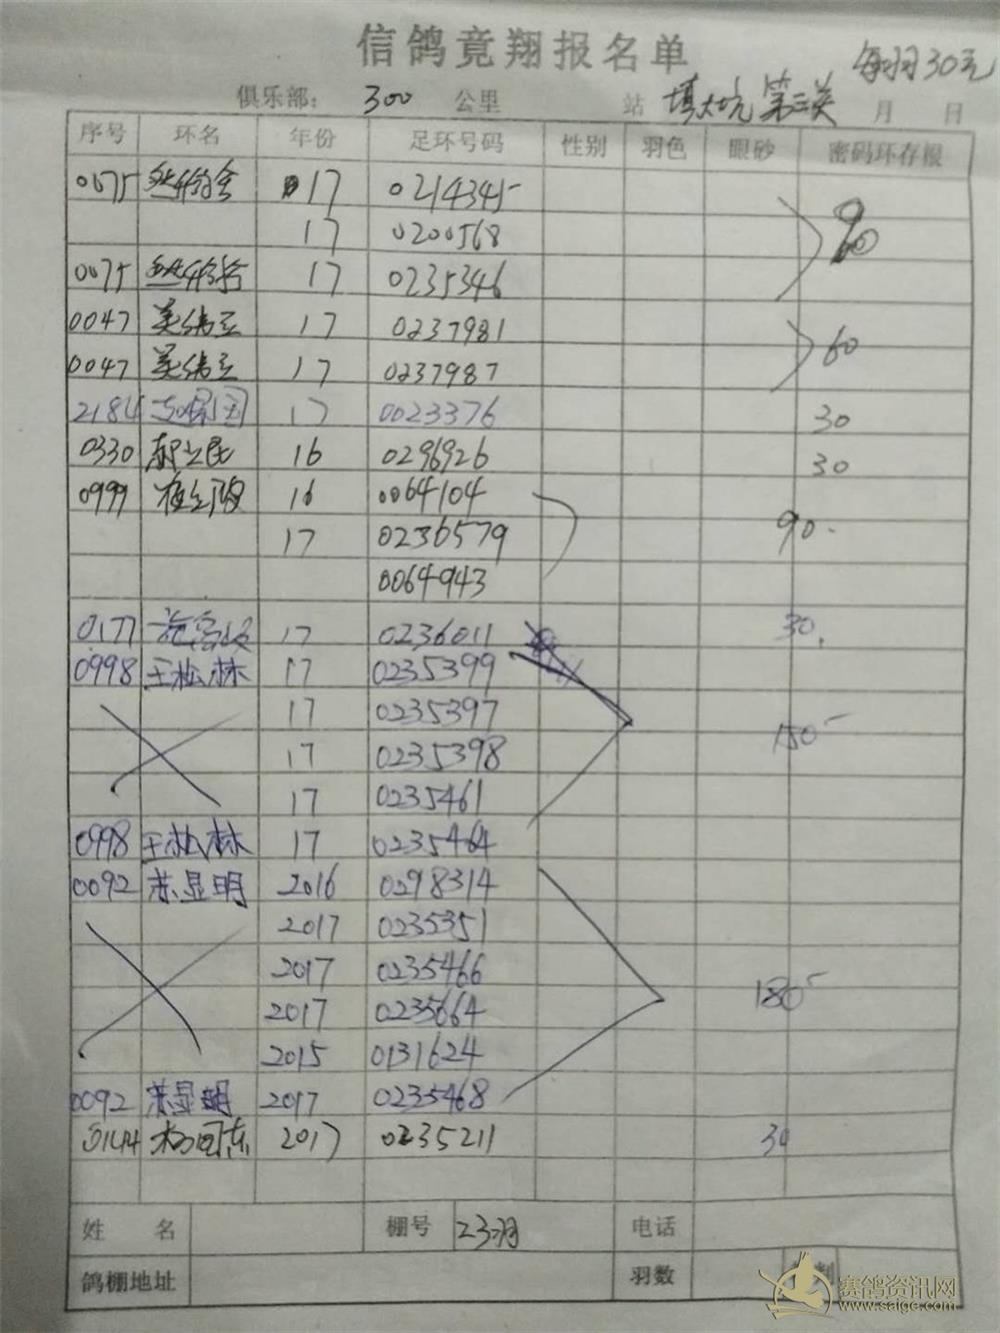 信鸽竟翔报名单
每羽30元
俱乐部： 300 公里 站 填大坑 第三关 月 日
序号 环名 年份 足环号码 性别 羽色 眼砂 密码环存根
0075 17 0214345
17 0200568 90
0075 17 0235346
0047 17 0237981
0047 17 0237987 60
2184 17 0023376 30
0330 16 0296926 30
0999 16 0064104
17 0236579 90
0064943
0177 17 0236011 30
0998 王松林 17 0235399
17 0235397
17 0235398 150
17 0235461
0998 王松林 17 0235464
0092 苏显明 2016 0298314
2017 0235351
2017 0235466
2017 0235664 180
2015 0131624
0092 苏显明 2017 0235468
0144 杨国东 2017 0235211 30
姓 名 棚号 23羽 电话
鸽棚地址 羽数
赛鸽资讯网
www.saige.com